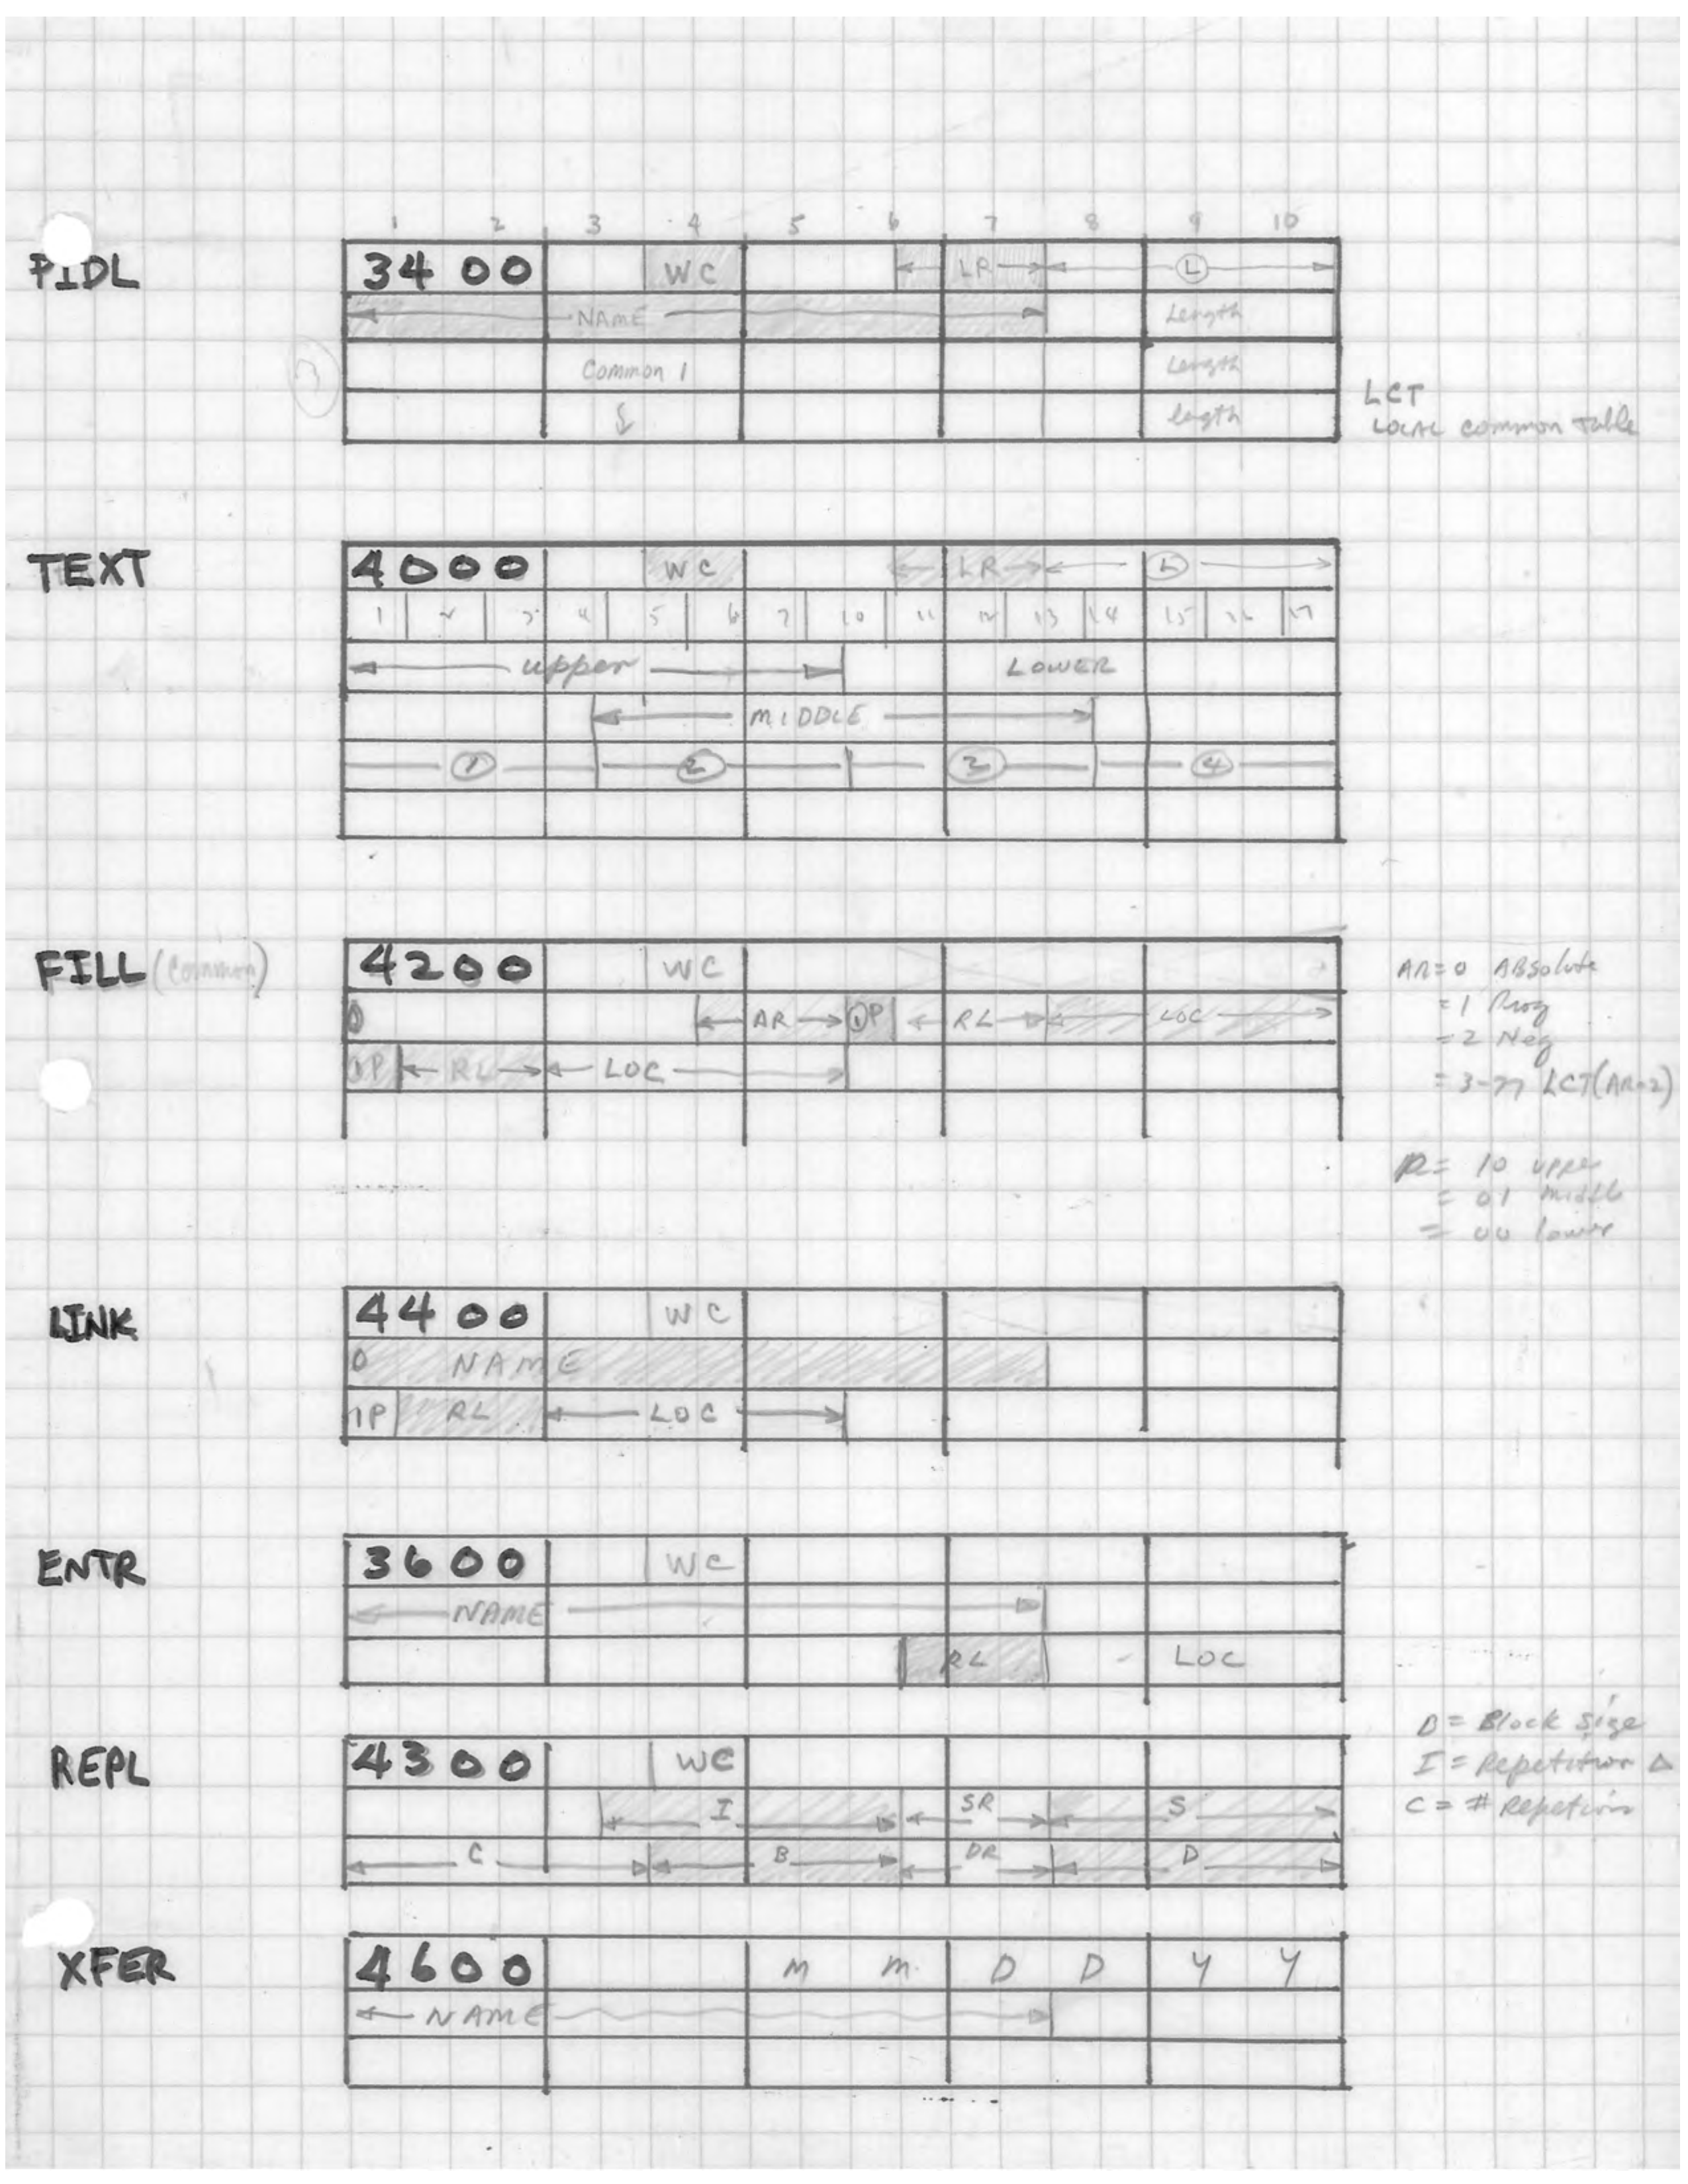 1 2 3 4 5 6 7 8 9 10
PIDL 3400 WC LR L
NAME Length
Common 1 Length
length
LCT
LOCAL common Table
TEXT 4000 WC LR L
1 2 3 4 5 6 7 10 11 12 13 14 15 16 17
upper LOWER
MIDDLE
1 2 3 4
FILL (Common) 4200 WC
0 AR 1P RL LOC
1P RL LOC
AR=0 ABsolute
=1 Prog
=2 Neg
= 3-77 LCT(AR-2)
P= 10 upper
= 01 middle
= 00 lower
LINK 4400 WC
0 NAME
1P RL LOC
ENTR 3600 WC
NAME
RL LOC
REPL 4300 WC
I SR S
C B DR D
B = Block Size
I = Repetition Δ
C = # Repetion
XFER 4600 M M D D Y Y
NAME